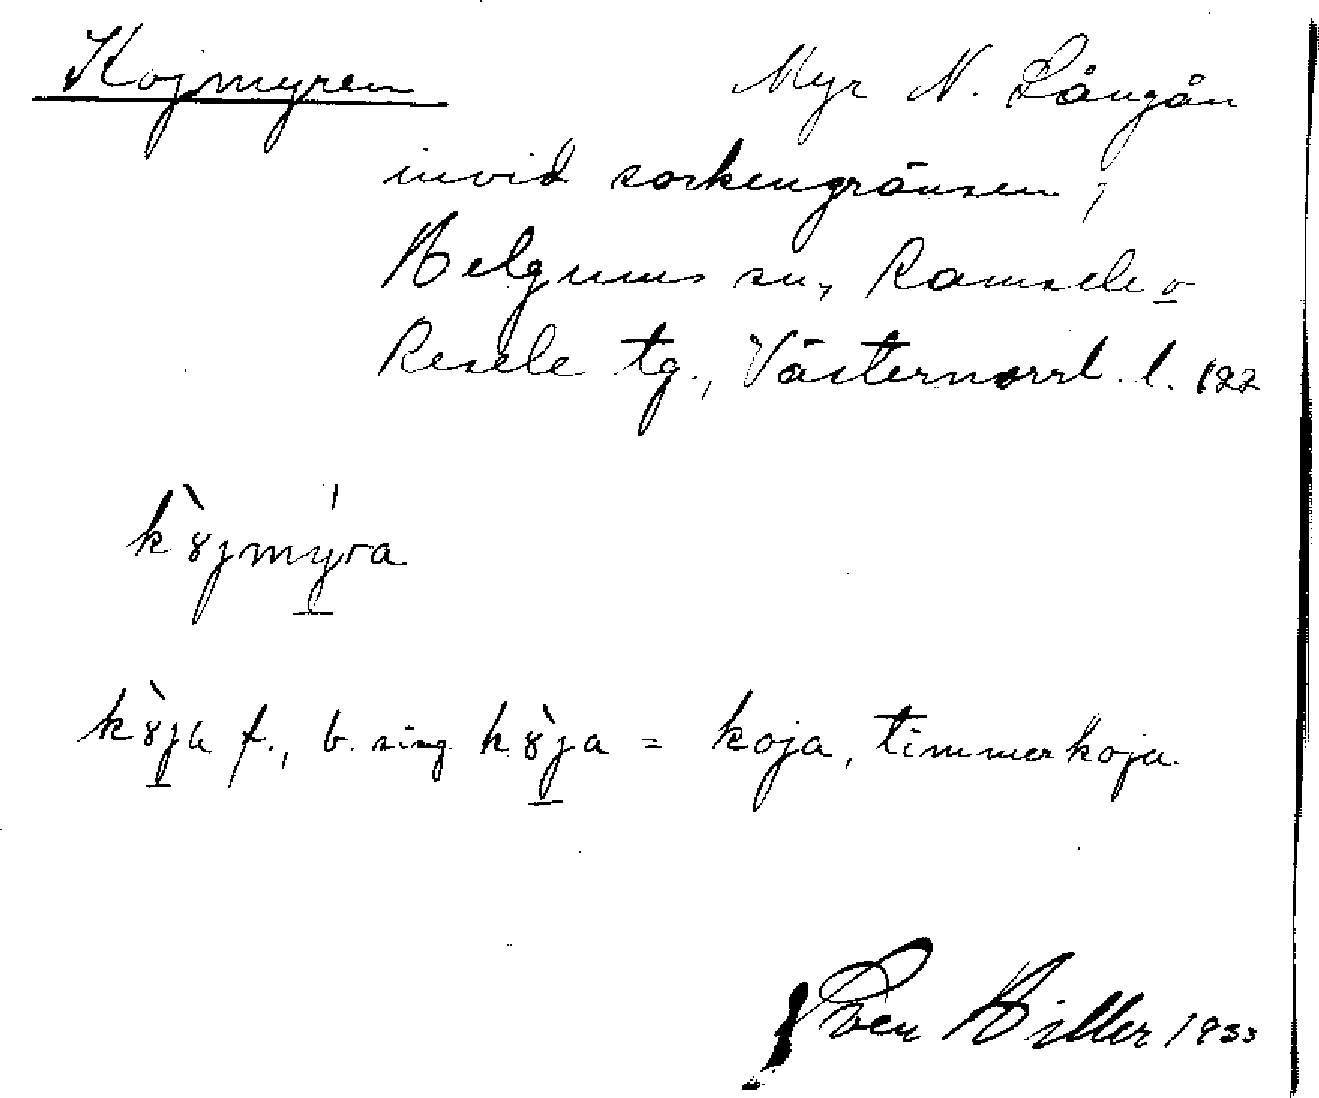 Kojmyren Myr N. Långån
invid sockengränsen,
Helgums sn, Ramsele o
Resele tg., Västernorrl. l. 122
kȣ̀jmýra
kȣ̀ja f., b. sing kȣ̀ja = koja, timmerkoja.
Sven Hiller 1933